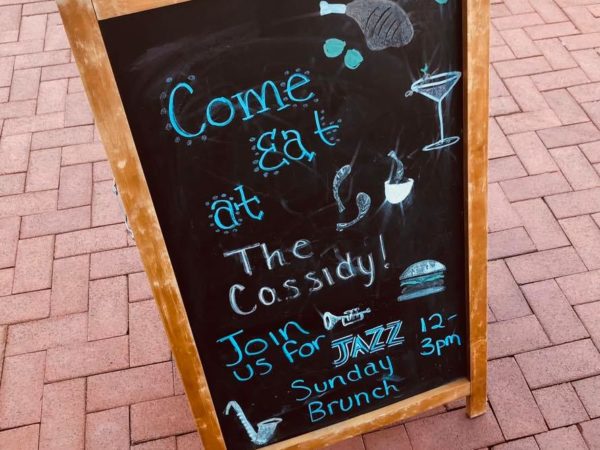 Come
Eat
at
The
Cassidy!
Join us for JAZZ 12-3pm
Sunday
Brunch